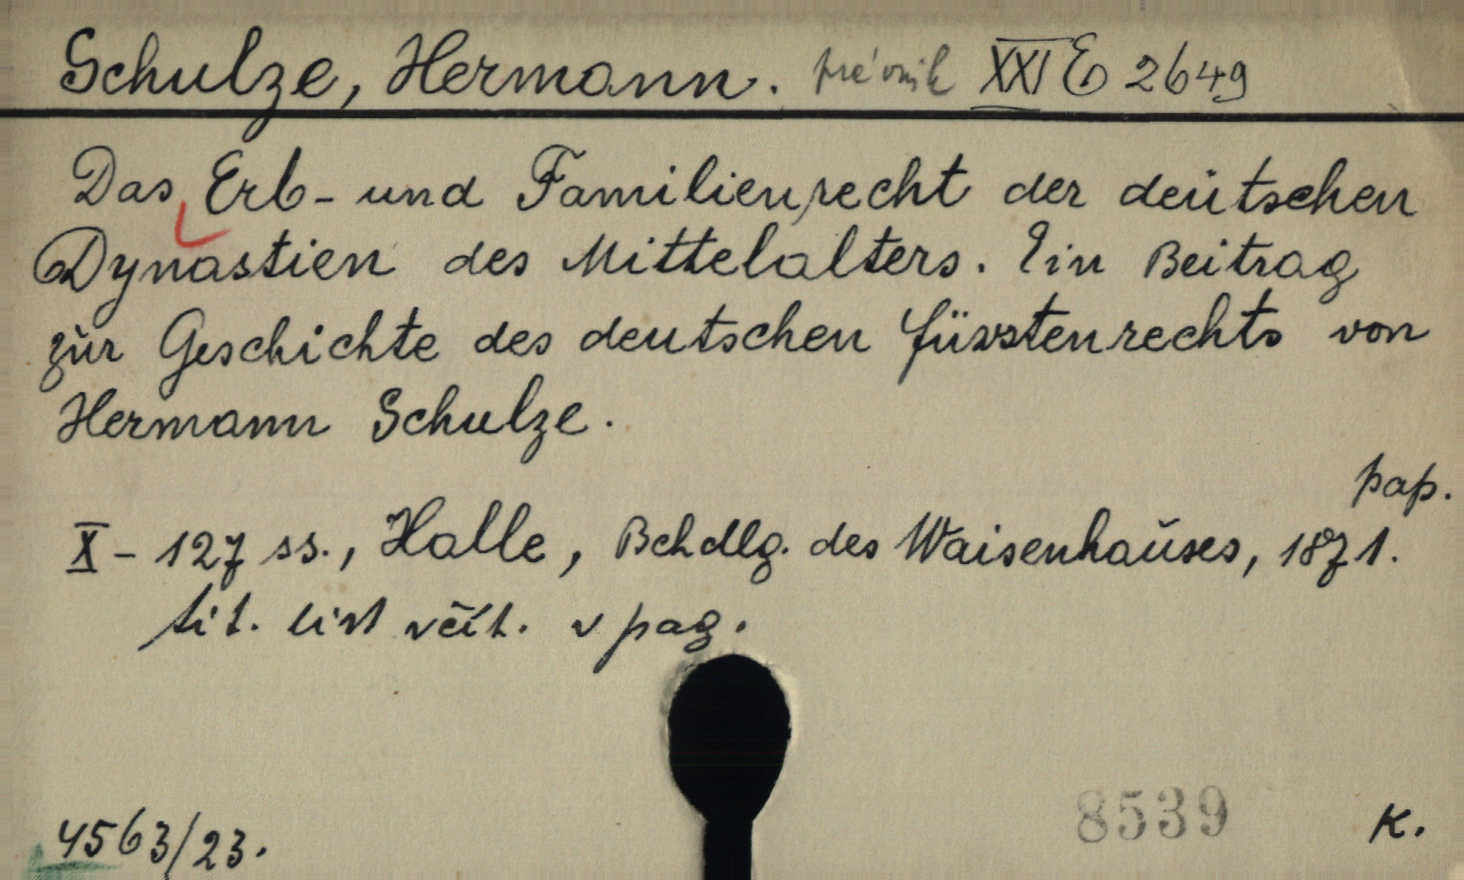 Schulze, Hermann. právník XXI E 2649
Das Erb- und Familienrecht der deutschen
Dynastien des Mittelalters. Ein Beitrag
zur Geschichte des deutschen Fürstenrechts von
Hermann Schulze.
pap.
X - 127 ss., Halle, Bchdlg. des Waisenhauses, 1871.
tit. list včít. v pag.
4563/23.
8539
K.